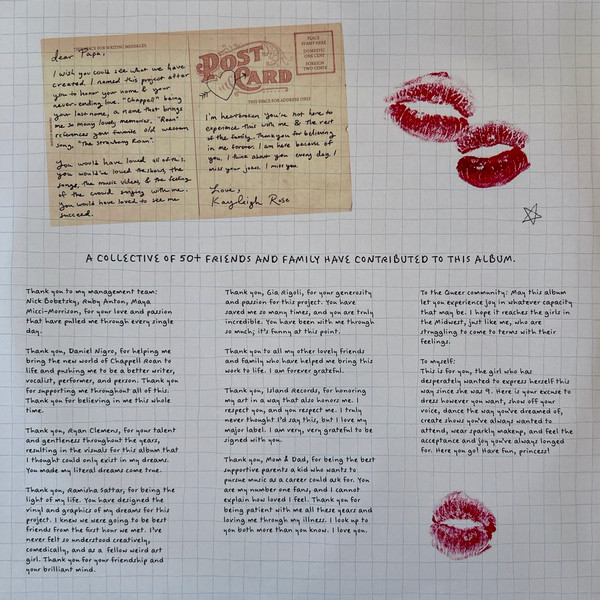 SPACE FOR WRITING MESSAGES
POST
CARD
PLACE
STAMP HERE
DOMESTIC
ONE CENT
FOREIGN
TWO CENTS
THIS SPACE FOR ADDRESS ONLY
dear Papa,
I wish you could see what we have
created. I named this project after
you to honor your home & your
never-ending love. "Chappell" being
your last name, a name that brings
me so many lovely memories. "Roan"
references your favorite old western
song, "The Strawberry Roan".
You would have loved all of this.
you would've loved the shows, the
songs, the music videos, & the feeling
of the crowd singing with me.
You would have loved to see me
succeed.
I'm heartbroken you're not here to
experience this with me & the rest
of the family. Thank you for believing
in me forever. I am here because of
you. I think about you every day. I
miss your jokes. I miss you.
Love,
Kayleigh Rose
A COLLECTIVE OF 50+ FRIENDS AND FAMILY HAVE CONTRIBUTED TO THIS ALBUM.
Thank you to my management team:
Nick Bobetsky, Ruby Anton, Maya
Micci-Morrison, for your love and passion
that have pulled me through every single
day.
Thank you, Daniel Nigro, for helping me
bring the new world of Chappell Roan to
life and pushing me to be a better writer,
vocalist, performer, and person. Thank you
for supporting me throughout all of this.
Thank you for believing in me this whole
time.
Thank you, Ryan Clemens, for your talent
and gentleness throughout the years,
resulting in the visuals for this album that
I thought could only exist in my dreams.
You made my literal dreams come true.
Thank you, Ramisha Sattar, for being the
light of my life. You have designed the
vinyl and graphics of my dreams for this
project. I knew we were going to be best
friends from the first hour we met. I've
never felt so understood creatively,
comedically, and as a fellow weird art
girl. Thank you for your friendship and
your brilliant mind.
Thank you, Gia Rigoli, for your generosity
and passion for this project. You have
saved me so many times, and you are truly
incredible. You have been with me through
so much; it's funny at this point.
Thank you to all my other lovely friends
and family who have helped me bring this
work to life. I am forever grateful.
Thank you, Island Records, for honoring
my art in a way that also honors me. I
respect you, and you respect me. I truly
never thought I'd say this, but I love my
major label. I am very, very grateful to be
signed with you.
Thank you, Mom & Dad, for being the best
supportive parents a kid who wants to
pursue music as a career could ask for. You
are my number one fans, and I cannot
explain how loved I feel. Thank you for
being patient with me all these years and
loving me through my illness. I look up to
you both more than you know. I love you.
To the Queer community: May this album
let you experience joy in whatever capacity
that may be. I hope it reaches the girls in
the Midwest, just like me, who are
struggling to come to terms with their
feelings.
To myself:
This is for you, the girl who has
desperately wanted to express herself this
way since she was 9. Here is your excuse to
dress however you want, show off your
voice, dance the way you've dreamed of,
create shows you've always wanted to
attend, wear sparkly makeup, and feel the
acceptance and joy you've always longed
for. Here you go! Have fun, princess!